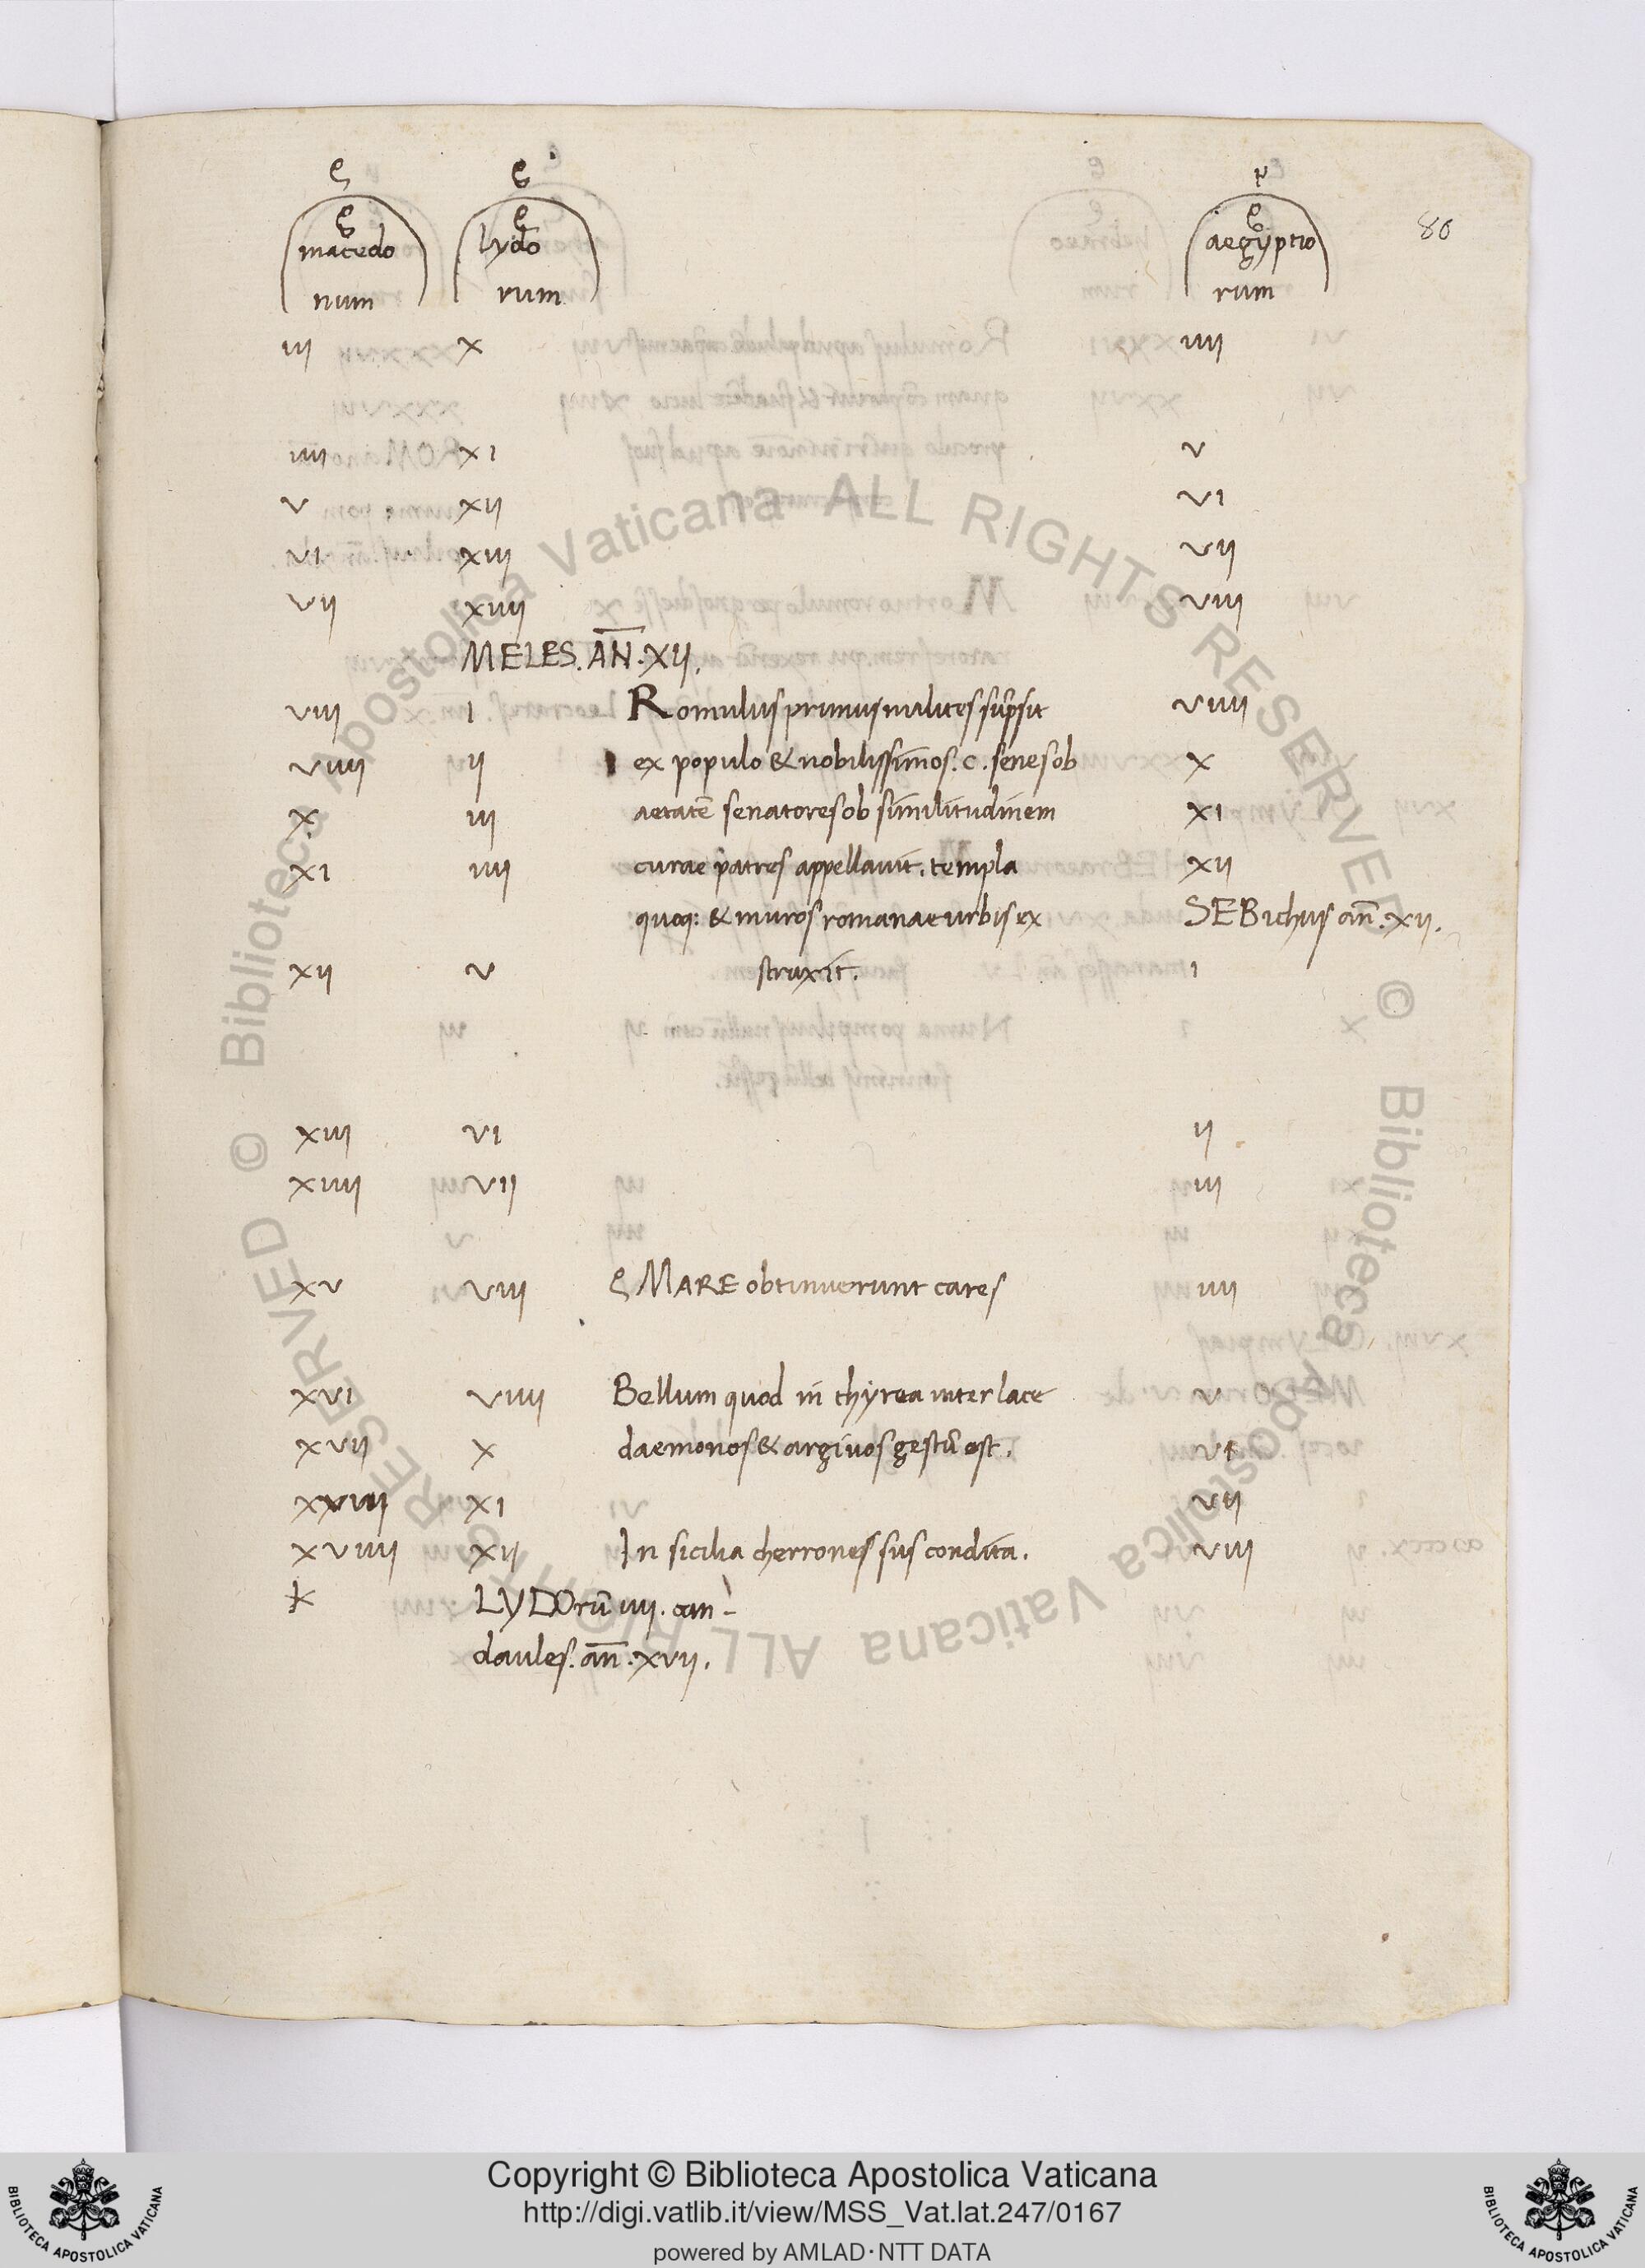 macedo lydo aegyptio 80
num rum rum
iii x iiii
iiii xi v
v xii vi
vi xiii vii
vii xiiii viii
MELES. AN̅. XII.
viii i Romulus primus milites sūpsit viiii
viiii ii ex populo & nobilissimos. c. senes ob x
x iii aetatē senatores ob similitudinem xi
xi iiii curae patres appellavit. templa xii
quoq: & muros romanae urbis ex SEBichus an̅. xii.
xii v struxit. i
xiii vi ii
xiiii vii iii
xv viii MARE obtinuerunt cares iiii
xvi viiii Bellum quod in thyrea inter lace v
xvii x daemonos & argivos gestū est. vi
xviii xi vii
xviiii xii In sicilia cherrones sus condita. viii
LYDOrū iiii. can-
daules. an̅. xvii.
© Biblioteca Apostolica Vaticana ALL RIGHTS RESERVED
© Biblioteca Apostolica Vaticana ALL RIGHTS RESERVED
Copyright © Biblioteca Apostolica Vaticana
http://digi.vatlib.it/view/MSS_Vat.lat.247/0167
powered by AMLAD·NTT DATA
BIBLIOTECA APOSTOLICA VATICANA
BIBLIOTECA APOSTOLICA VATICANA